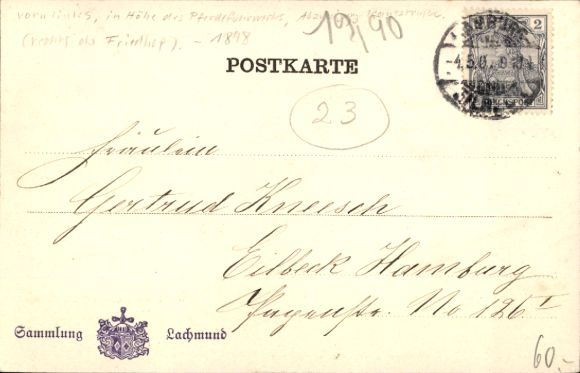 vorn links, in Höhe des Pferdefuhrwerks,
(rechts der Friedhof). - 1898
19/90
POSTKARTE
HAMBURG
2
23
Fräulein
Gertrud Kneesch
Eilbeck Hamburg
Papenstr. No 126 I
Sammlung Lachmund
60.-